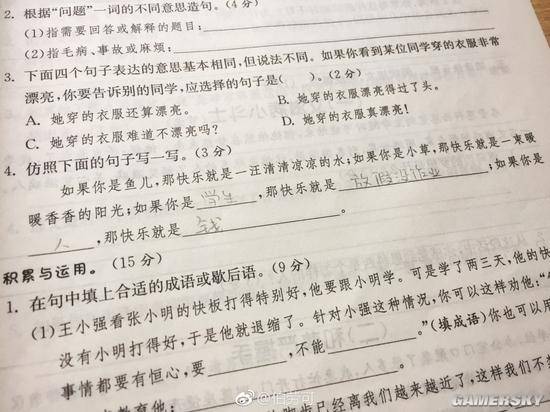 2. 根据“问题”一词的不同意思造句。(4分)
(1)指需要回答或解释的题目:
(2)指毛病、事故或麻烦:
3. 下面四个句子表达的意思基本相同,但说法不同。如果你看到某位同学穿的衣服非常
漂亮,你要告诉别的同学,应选择的句子是( )。(2分)
A. 她穿的衣服还算漂亮。 B. 她穿的衣服漂亮得过了头。
C. 她穿的衣服难道不漂亮吗? D. 她穿的衣服真漂亮!
4. 仿照下面的句子写一写。(3分)
如果你是鱼儿,那快乐就是一汪清清凉凉的水;如果你是小草,那快乐就是一束暖
暖香香的阳光;如果你是 学生 ,那快乐就是 放假没作业 ;如果你是
人 ,那快乐就是 钱 。
积累与运用。(15分)
1. 在句中填上合适的成语或歇后语。(9分)
(1)王小强看张小明的快板打得特别好,他要跟小明学。可是学了两三天,他的快
没有小明打得好,于是他就退缩了。针对小强这种情况,你可以这样劝他:“
事情都要有恒心,要 ,不能 。”(填成语)你也可以用
教育他:
的脚步已经离我们越来越近了,这样我们不
@怕劳可
GAMERSKY